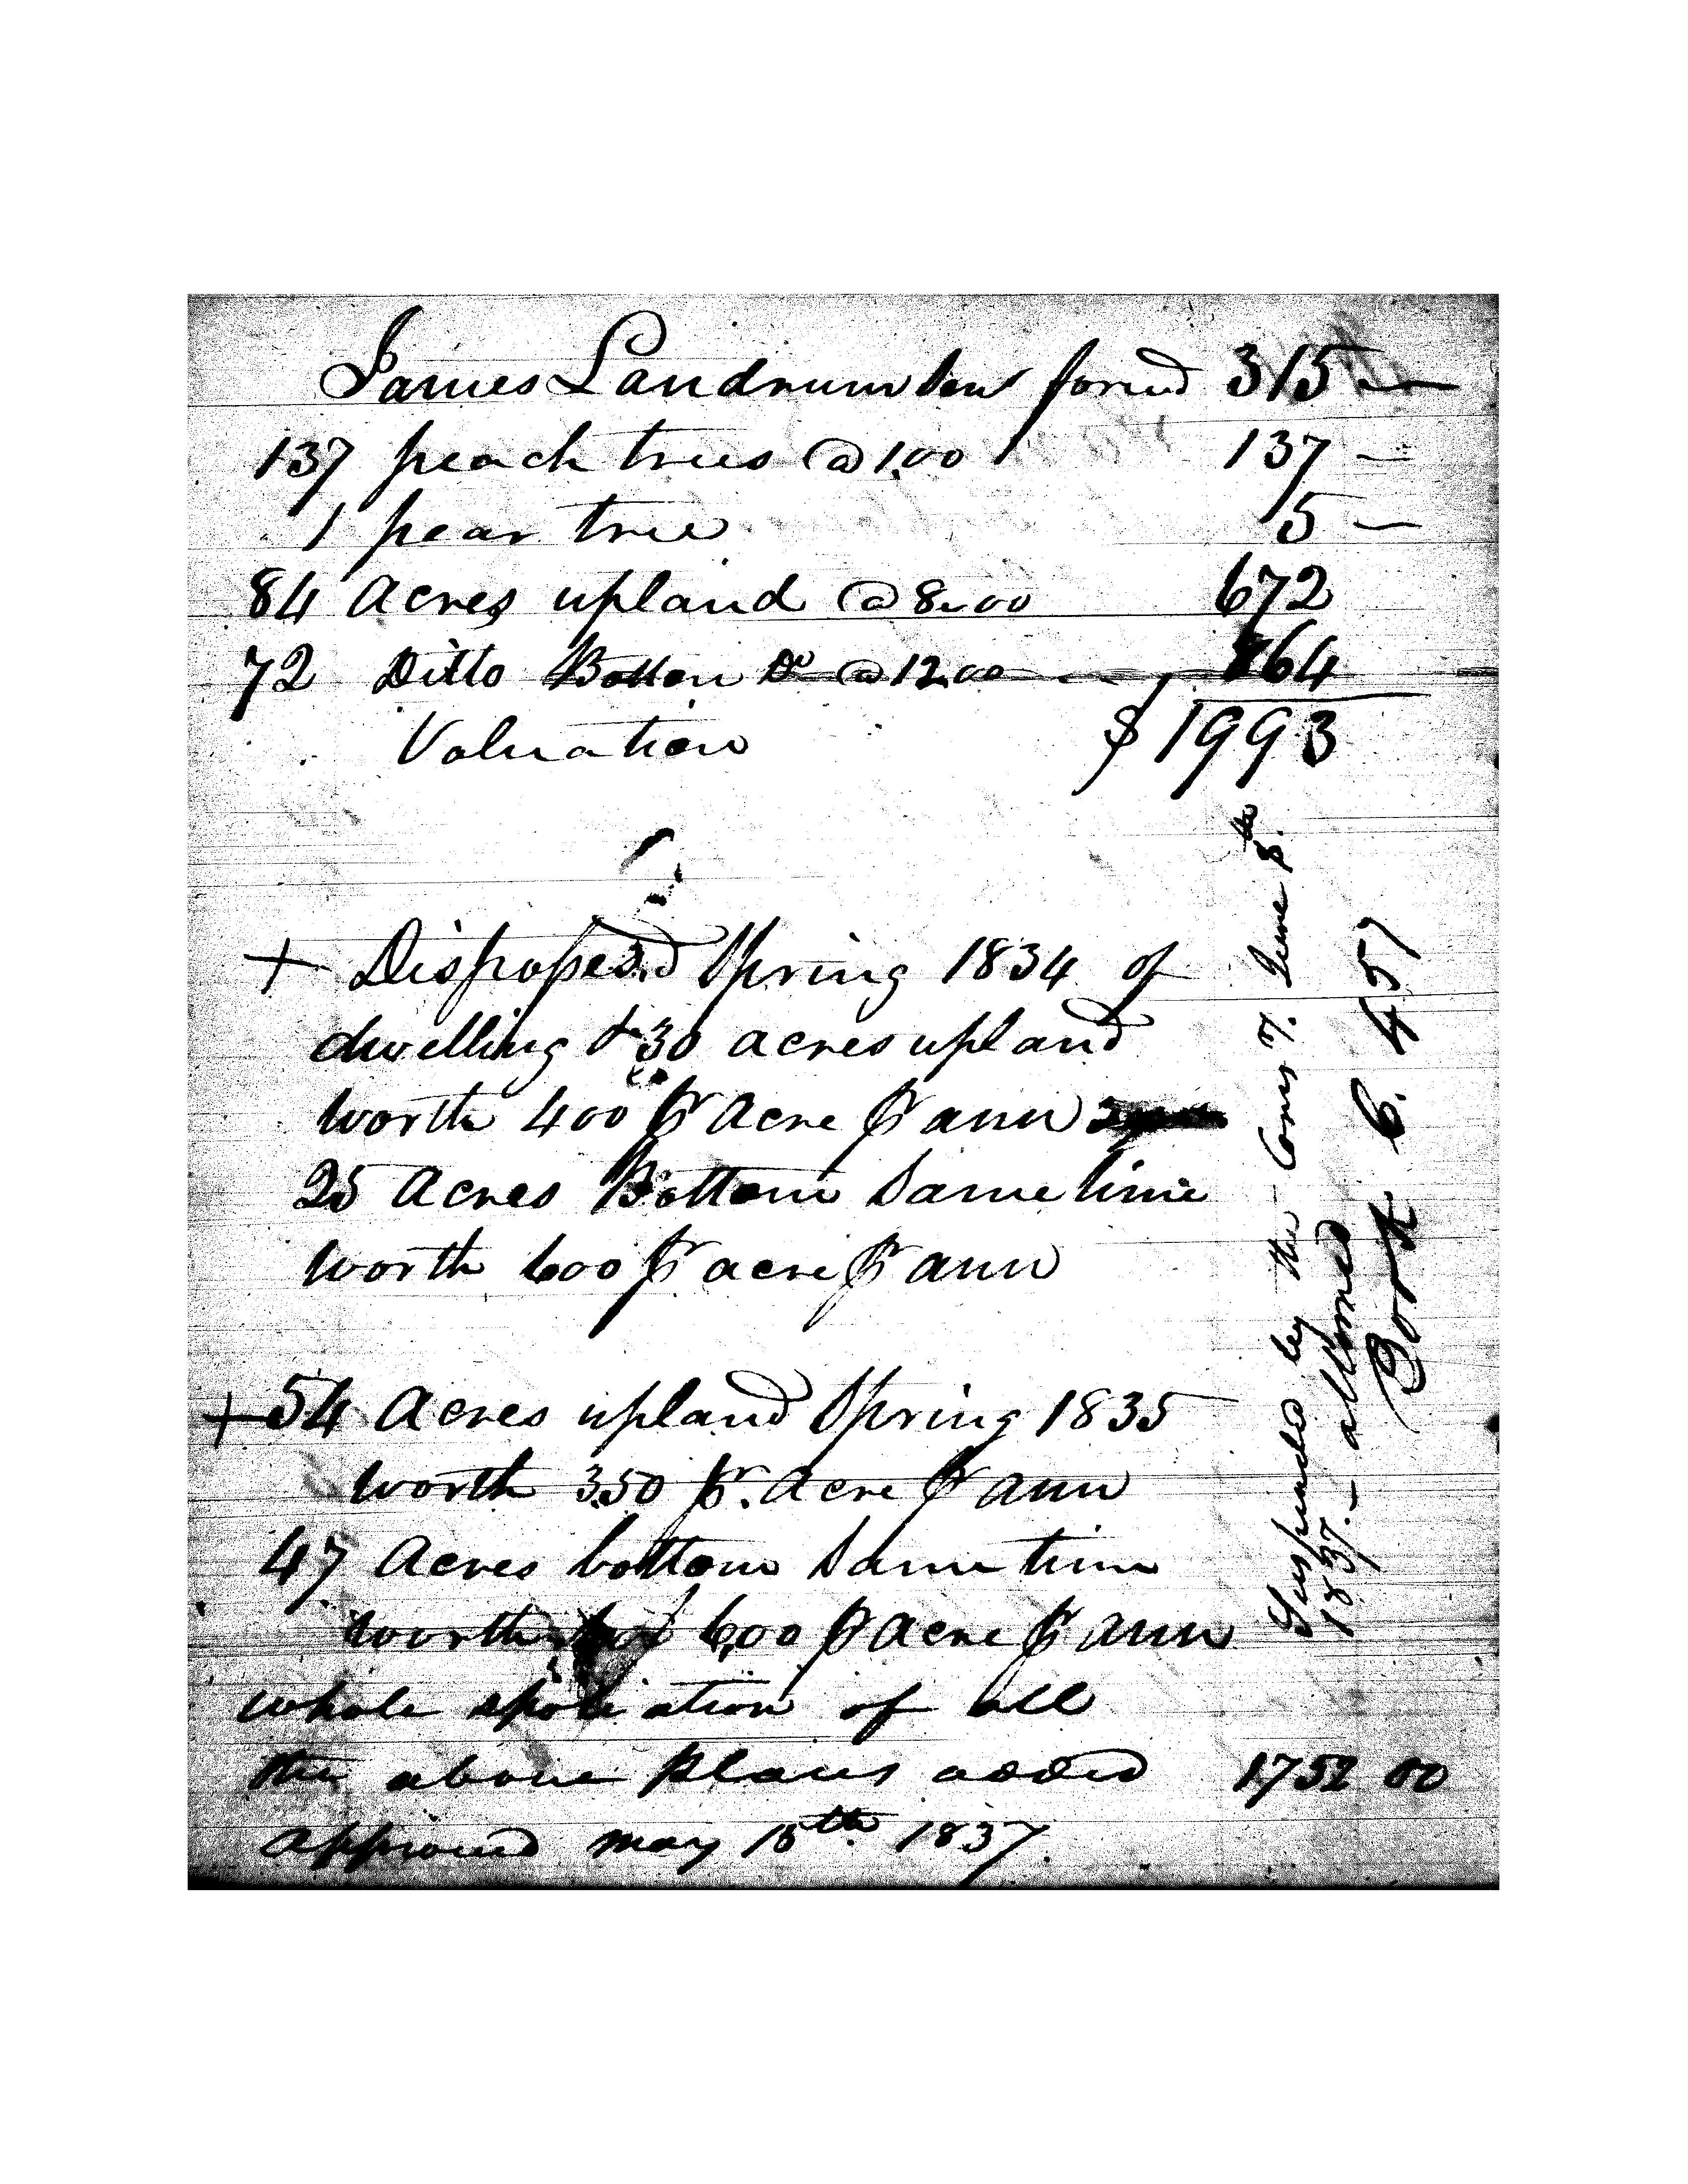 James Landrum Sen forwd 315 —
137 peach trees @ 1.00 137 —
1 pear tree 5 —
84 Acres upland @ 8.00 672
72 Ditto Bottom Do @ 12.00 864
Valuation $ 1993
+ Dispossed Spring 1834 of
dwelling & 30 acres upland
worth 400 pr Acre pr ann
25 Acres Bottom Same time
worth 600 pr acre pr ann
+ 54 Acres upland Spring 1835
worth 3.50 pr. Acre pr ann
47 Acres bottom Same time
worth 6,00 pr Acre pr ann
whole spoliation of all
the above places added 1752 00
approved may 15th 1837.
Suspended by the Comrs. June 8th
1837. – allowed
Book C. 457